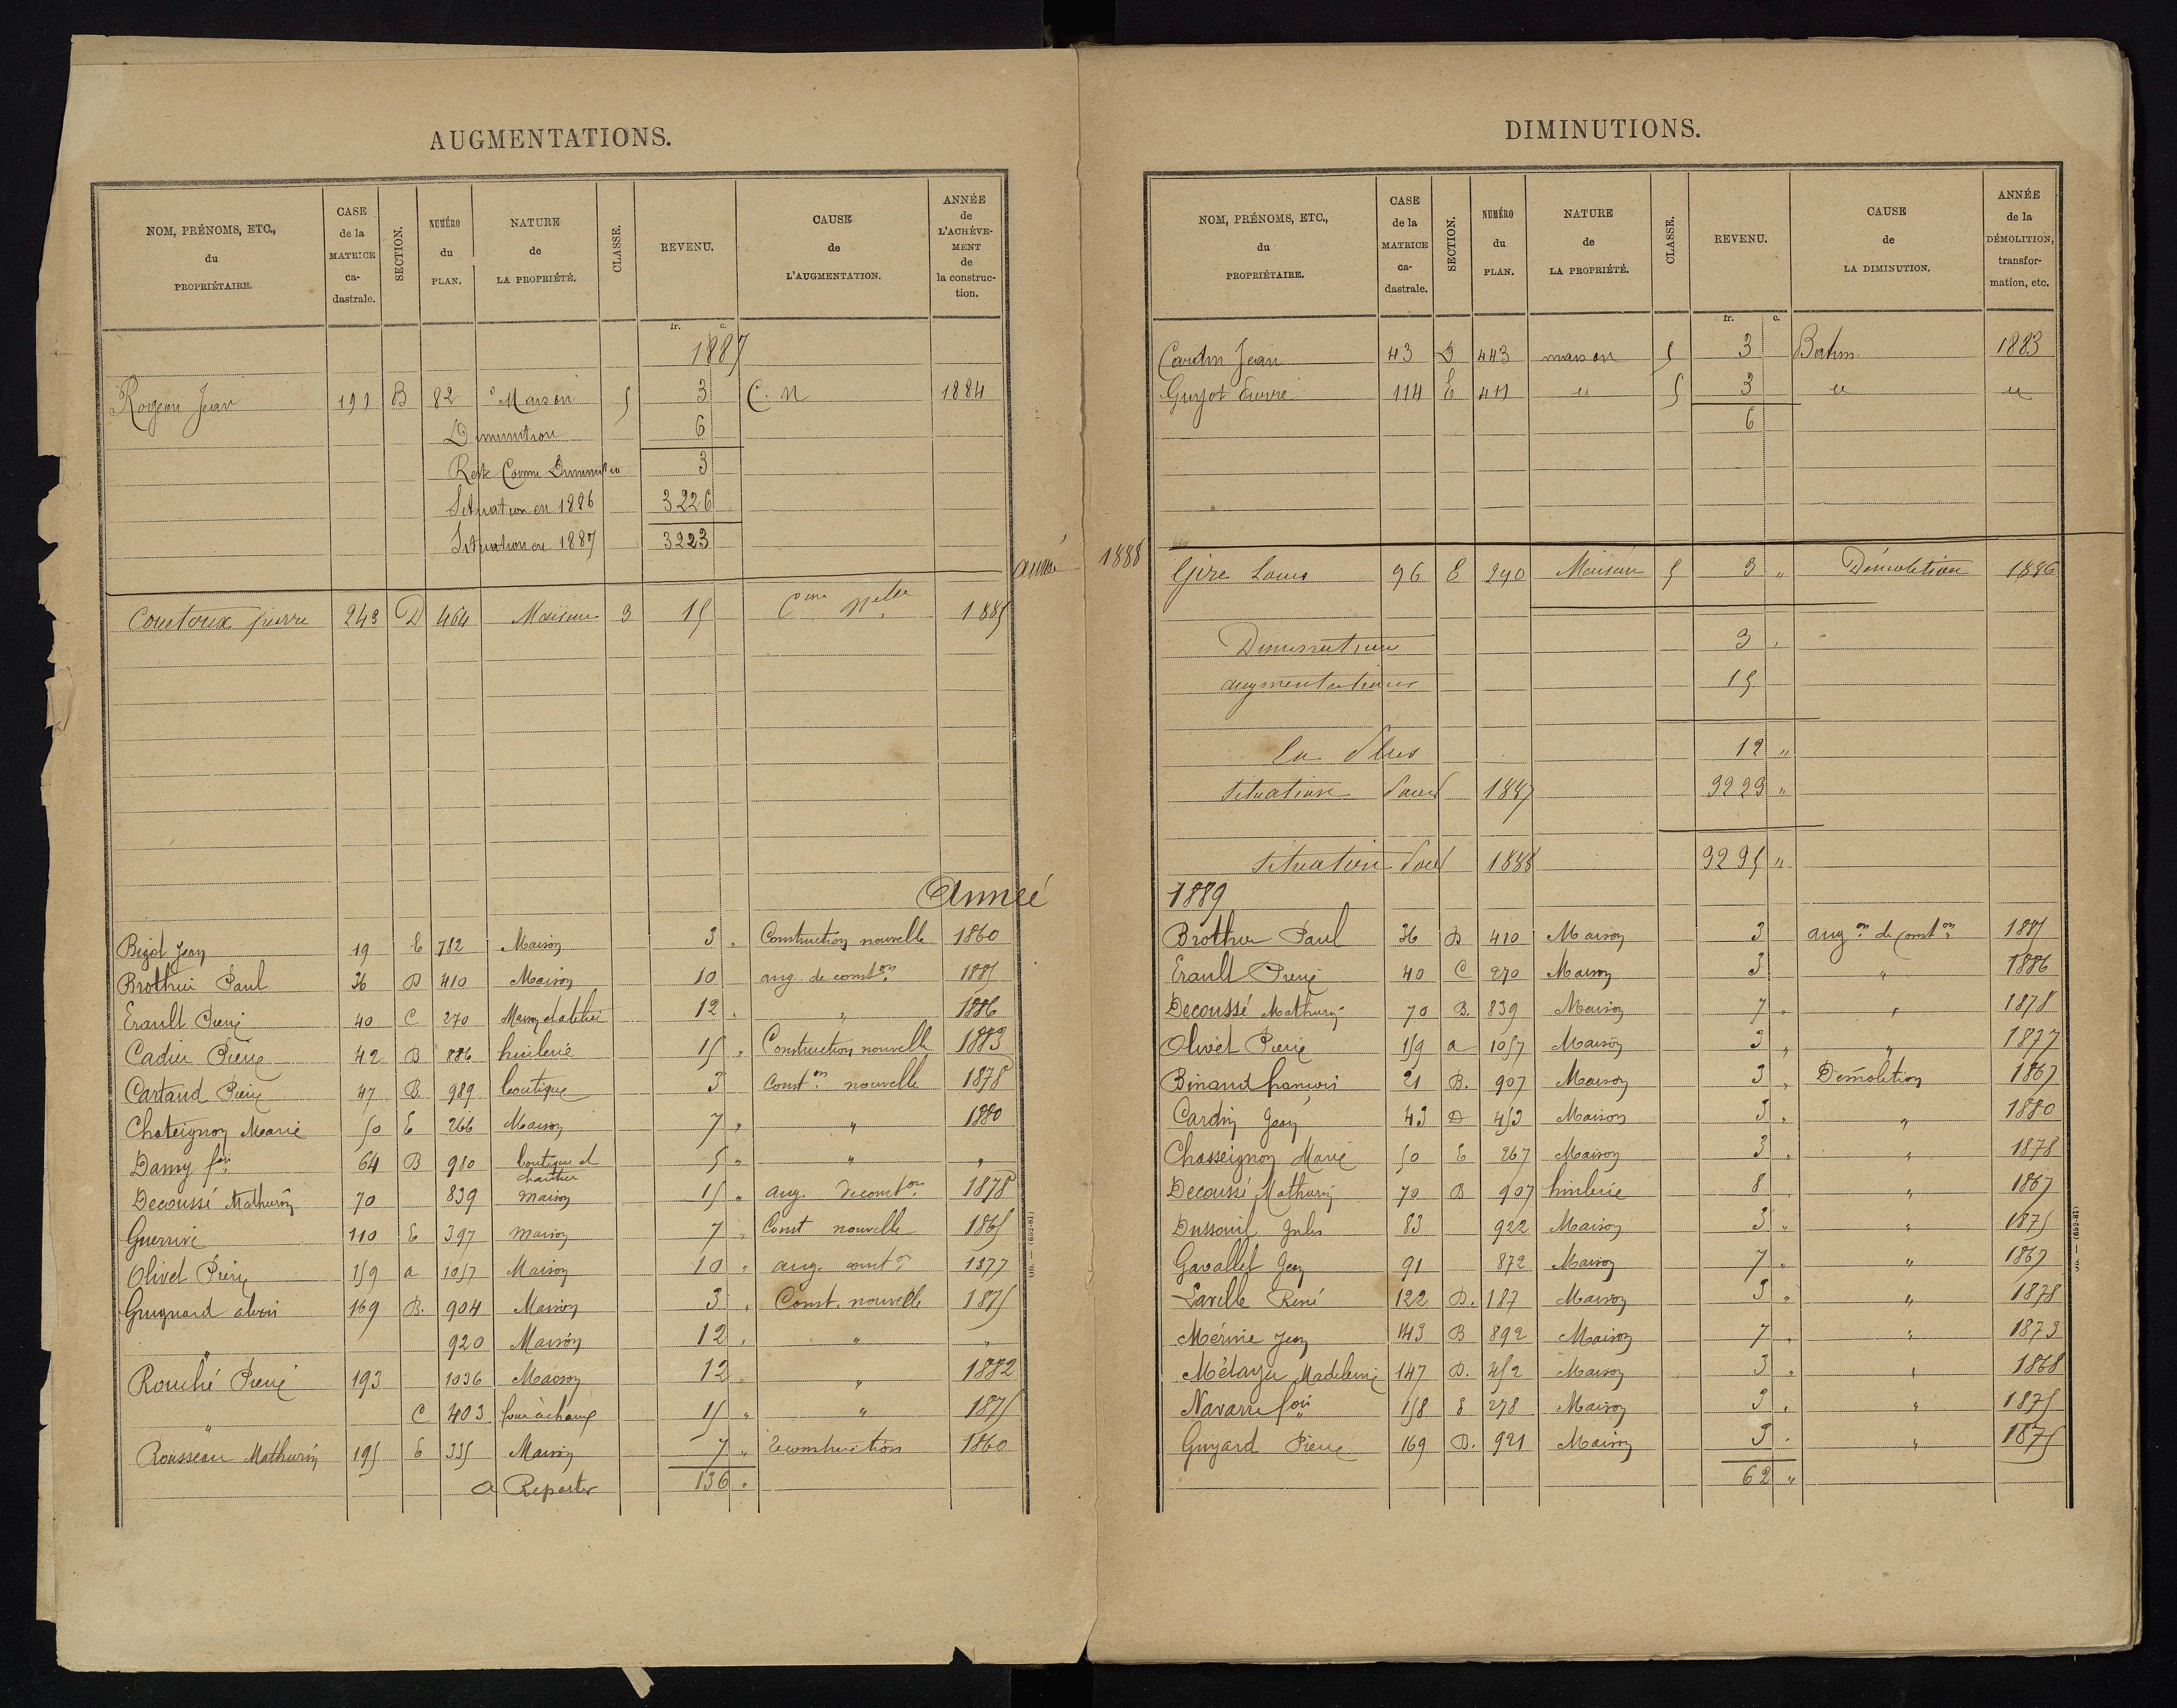 AUGMENTATIONS.
NOM, PRÉNOMS, ETC., du PROPRIÉTAIRE. CASE de la MATRICE ca- dastrale. SECTION. NUMÉRO du PLAN. NATURE de LA PROPRIÉTÉ. CLASSE. REVENU. CAUSE de L'AUGMENTATION. ANNÉE de L'ACHÈVE- MENT de la construc- tion.
fr. c.
1887
Rogeon Jean 191 B 82 Maison 5 3 C. N 1884
Diminution 6
Reste Comme Diminution 3
Situation en 1886 3226
Situation en 1887 3223
Courtoux pierre 243 D 464 Maison 3 15 Con Nelle 1885
Année
Bizot Jean 19 E 782 Maison 3 " Construction nouvelle 1860
Brothier Paul 36 D 410 Maison 10 aug. de conston 1885
Erault Pierre 40 C 270 Maison et atelier 12 " " 1886
Cadier Pierre 42 B 886 huilerie 15 " Construction nouvelle 1883
Cartaud Pierre 47 B. 989 boutique 3 Conston nouvelle 1878
Chateignon Marie 50 E 266 Maison 7 " " 1880
Damy fois 64 B 980 boutique et chantier 5 " " "
Decoussé Mathurin 70 839 maison 15 " aug. de conston 1878
Guerrivé 110 E 397 maison 7 " Const nouvelle 1865
Olivet Pierre 159 a 1057 Maison 10 " aug. conston 1877
Guignard alexis 169 B. 904 Maison 3 " Const. nouvelle 1875
" 920 Maison 12 " " "
Rouché Pierre 193 1036 Maison 12 " 1882
" C 403 four à chaux 15 " " 1875
Rousseau Mathurin 195 E 335 Maison 7 " Reconstruction 1860
a Reporter 136 "
DIMINUTIONS.
NOM, PRÉNOMS, ETC., du PROPRIÉTAIRE. CASE de la MATRICE ca- dastrale. SECTION. NUMÉRO du PLAN. NATURE de LA PROPRIÉTÉ. CLASSE. REVENU. CAUSE de LA DIMINUTION. ANNÉE de la DÉMOLITION, transfor- mation, etc.
fr. c.
Cardin Jean 43 D 443 maison 5 3 1883
Guyot Pierre 114 E 411 " 5 3 " "
6
année 1888
Gire Louis 96 E 290 Maison 5 3 " Démolition 1886
Diminution 3 "
augmentation 15
En Plus 12 "
situation pour 1887 3223 "
situation pour 1888 3235 "
1889
Brothier Paul 36 D 410 Maison 3 augon de conston 1885
Erault Pierre 40 C 270 Maison 3 " 1886
Decoussé Mathurin 70 B. 839 Maison 7 " " 1878
Olivet Pierre 159 a 1057 Maison 3 " " 1877
Binaud françois 21 B. 907 Maison 3 " Démolition 1867
Cardin Jean 43 D 453 Maison 3 " " 1880
Chasseignon Marie 50 E 267 Maison 3 " " 1878
Decoussé Mathurin 70 B 907 huilerie 8 " " 1867
Dussouil Jules 83 922 Maison 3 " " 1875
Gavallet Jean 91 872 Maison 7 " " 1867
Laville René 122 D. 187 Maison 3 " " 1878
Mérine Jean 143 B 892 Maison 7 " " 1873
Métayer Madeleine 147 D. 452 Maison 3 " " 1868
Navarre fois 158 E 278 Maison 3 " " 1875
Guyard Pierre 169 B. 921 Maison 3 " " 1875
62 "